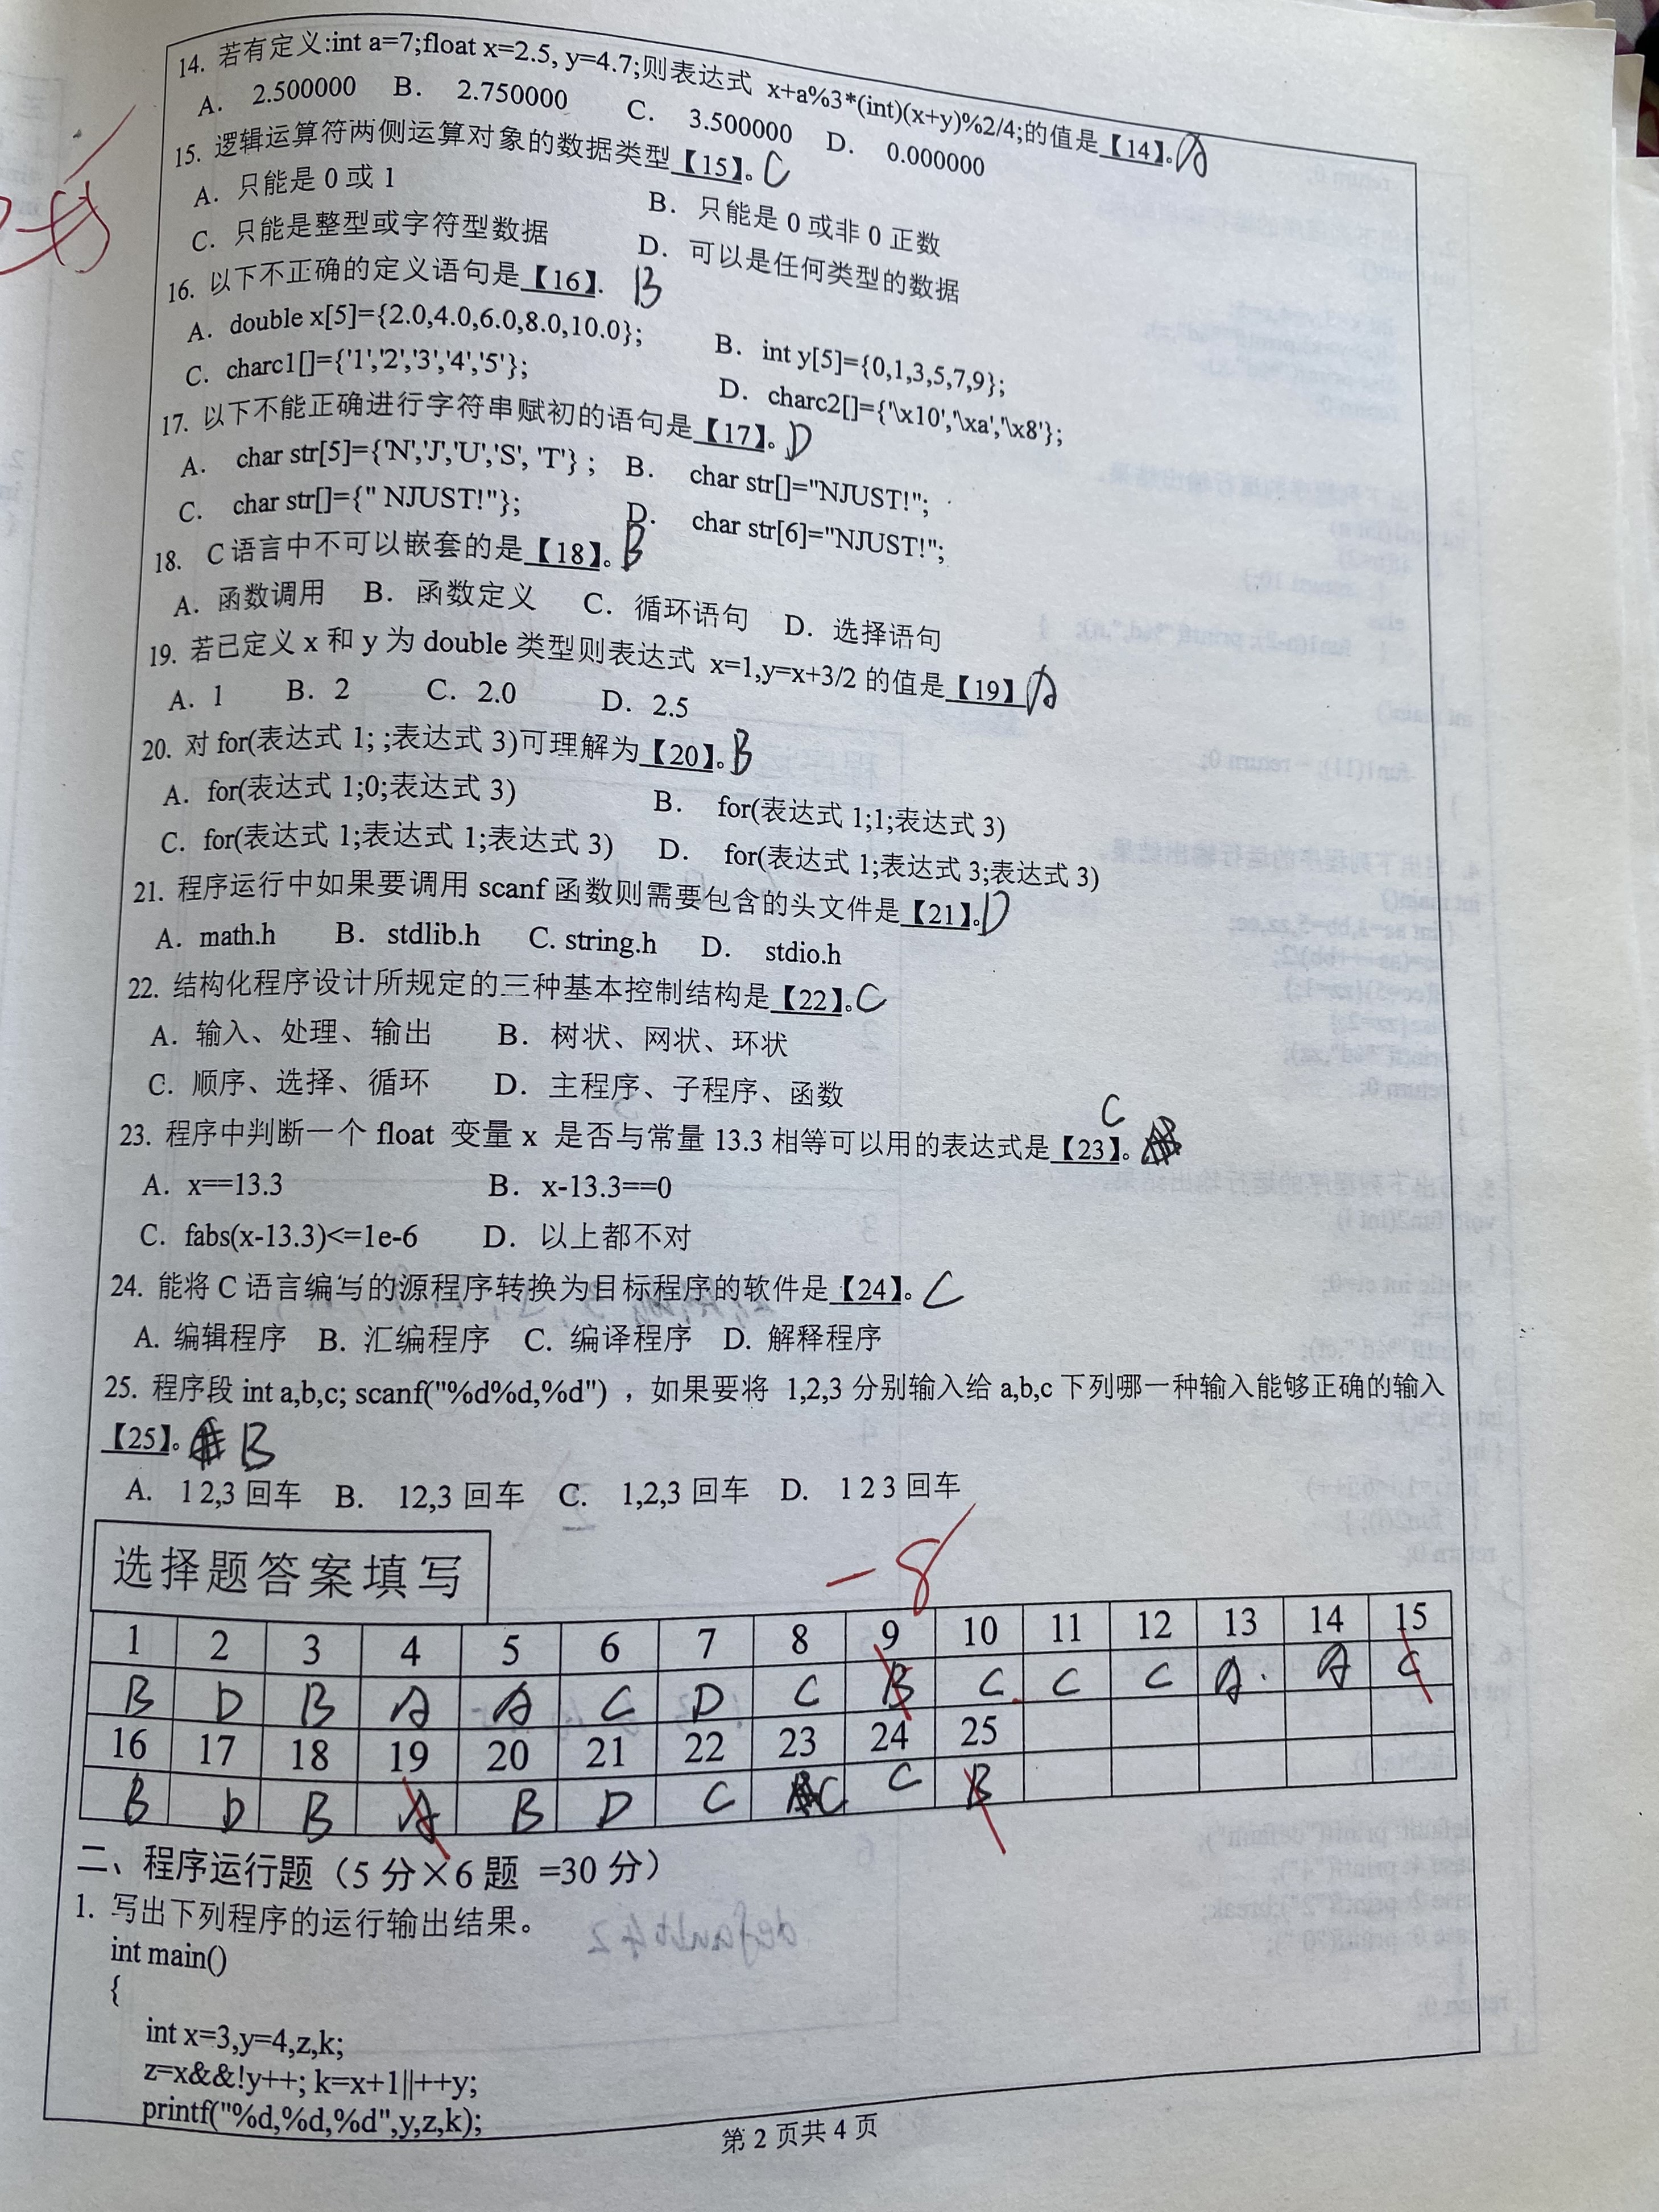 14. 若有定义:int a=7;float x=2.5, y=4.7;则表达式 x+a%3*(int)(x+y)%2/4;的值是【14】。A
A. 2.500000 B. 2.750000 C. 3.500000 D. 0.000000
15. 逻辑运算符两侧运算对象的数据类型【15】。C
A. 只能是 0 或 1 B. 只能是 0 或非 0 正数
C. 只能是整型或字符型数据 D. 可以是任何类型的数据
16. 以下不正确的定义语句是【16】. B
A. double x[5]={2.0,4.0,6.0,8.0,10.0}; B. int y[5]={0,1,3,5,7,9};
C. charc1[]={'1','2','3','4','5'}; D. charc2[]={'\x10','\xa','\x8'};
17. 以下不能正确进行字符串赋初的语句是【17】。D
A. char str[5]={'N','J','U','S', 'T'} ; B. char str[]="NJUST!";
C. char str[]={" NJUST!"}; D. char str[6]="NJUST!";
18. C 语言中不可以嵌套的是【18】。B
A. 函数调用 B. 函数定义 C. 循环语句 D. 选择语句
19. 若已定义 x 和 y 为 double 类型则表达式 x=1,y=x+3/2 的值是【19】A
A. 1 B. 2 C. 2.0 D. 2.5
20. 对 for(表达式 1; ;表达式 3)可理解为【20】。B
A. for(表达式 1;0;表达式 3) B. for(表达式 1;1;表达式 3)
C. for(表达式 1;表达式 1;表达式 3) D. for(表达式 1;表达式 3;表达式 3)
21. 程序运行中如果要调用 scanf 函数则需要包含的头文件是【21】。D
A. math.h B. stdlib.h C. string.h D. stdio.h
22. 结构化程序设计所规定的三种基本控制结构是【22】。C
A. 输入、处理、输出 B. 树状、网状、环状
C. 顺序、选择、循环 D. 主程序、子程序、函数
23. 程序中判断一个 float 变量 x 是否与常量 13.3 相等可以用的表达式是【23】。C
A. x==13.3 B. x-13.3==0
C. fabs(x-13.3)<=1e-6 D. 以上都不对
24. 能将 C 语言编写的源程序转换为目标程序的软件是【24】。C
A. 编辑程序 B. 汇编程序 C. 编译程序 D. 解释程序
25. 程序段 int a,b,c; scanf("%d%d,%d") ，如果要将 1,2,3 分别输入给 a,b,c 下列哪一种输入能够正确的输入
【25】。B
A. 1 2,3 回车 B. 12,3 回车 C. 1,2,3 回车 D. 1 2 3 回车
-8
选择题答案填写
1 2 3 4 5 6 7 8 9 10 11 12 13 14 15
B D B A A C D C B C C C A. A C
16 17 18 19 20 21 22 23 24 25
B D B A B D C C C B
二、程序运行题（5 分×6 题 =30 分）
1. 写出下列程序的运行输出结果。
int main()
{
int x=3,y=4,z,k;
z=x&&!y++; k=x+1||++y;
printf("%d,%d,%d",y,z,k);
第 2 页共 4 页